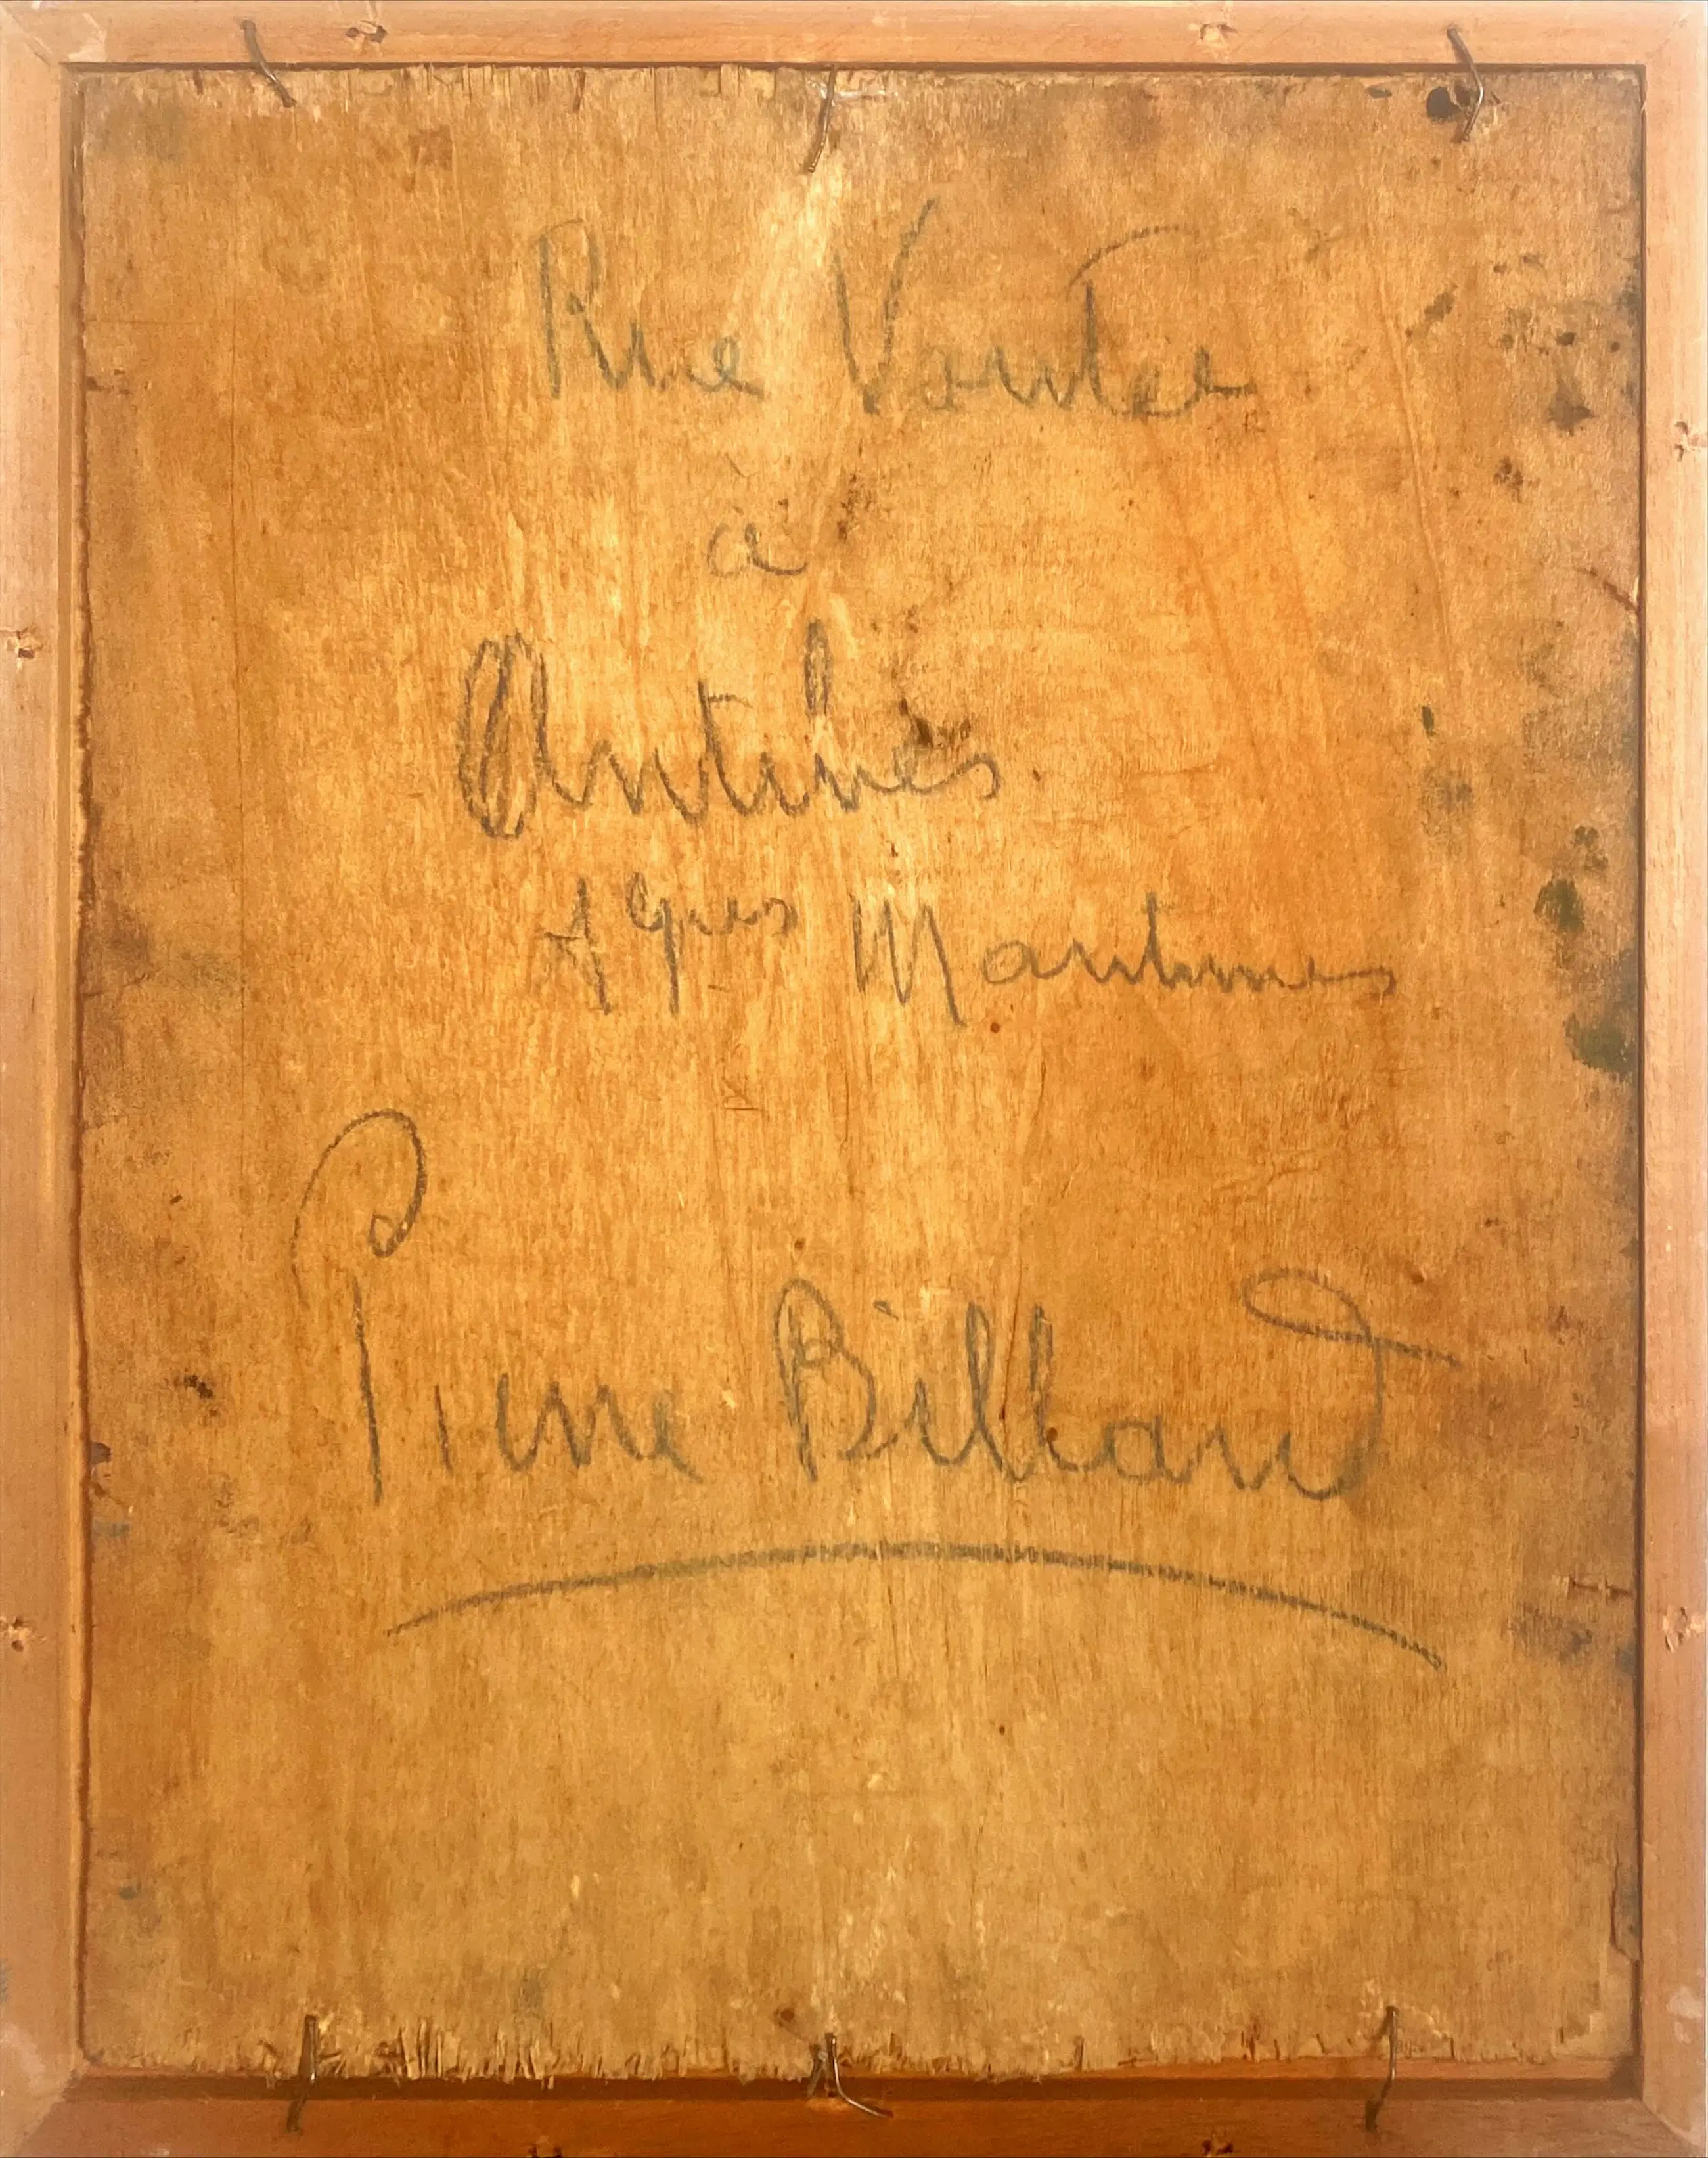 Rue Voutée
à
Antibes
Alpes Maritimes
Pierre Billaud